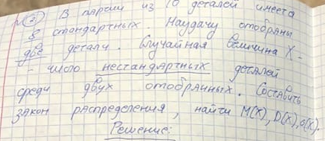 №3) В партии из 10 деталей имеется
8 стандартных. Наудачу отобраны
две детали. Случайная величина X -
- число нестандартных деталей
среди двух отобранных. Составить
закон распределения, найти M(X), D(X), σ(X).
Решение: